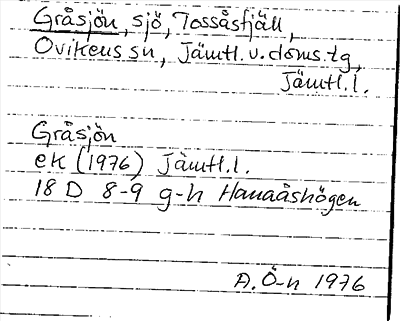 Gråsjön, sjö, Tossåsfjäll,
Ovikens sn, Jämtl.v.doms.tg,
Jämtl.l.
Gråsjön
ek (1976) Jämtl.l.
18 D 8-9 g-h Hanaåshögen
A.Ö-n 1976